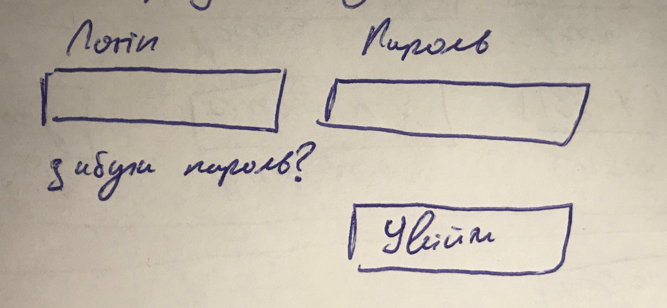 Логін
Пароль
забули пароль?
Увійти